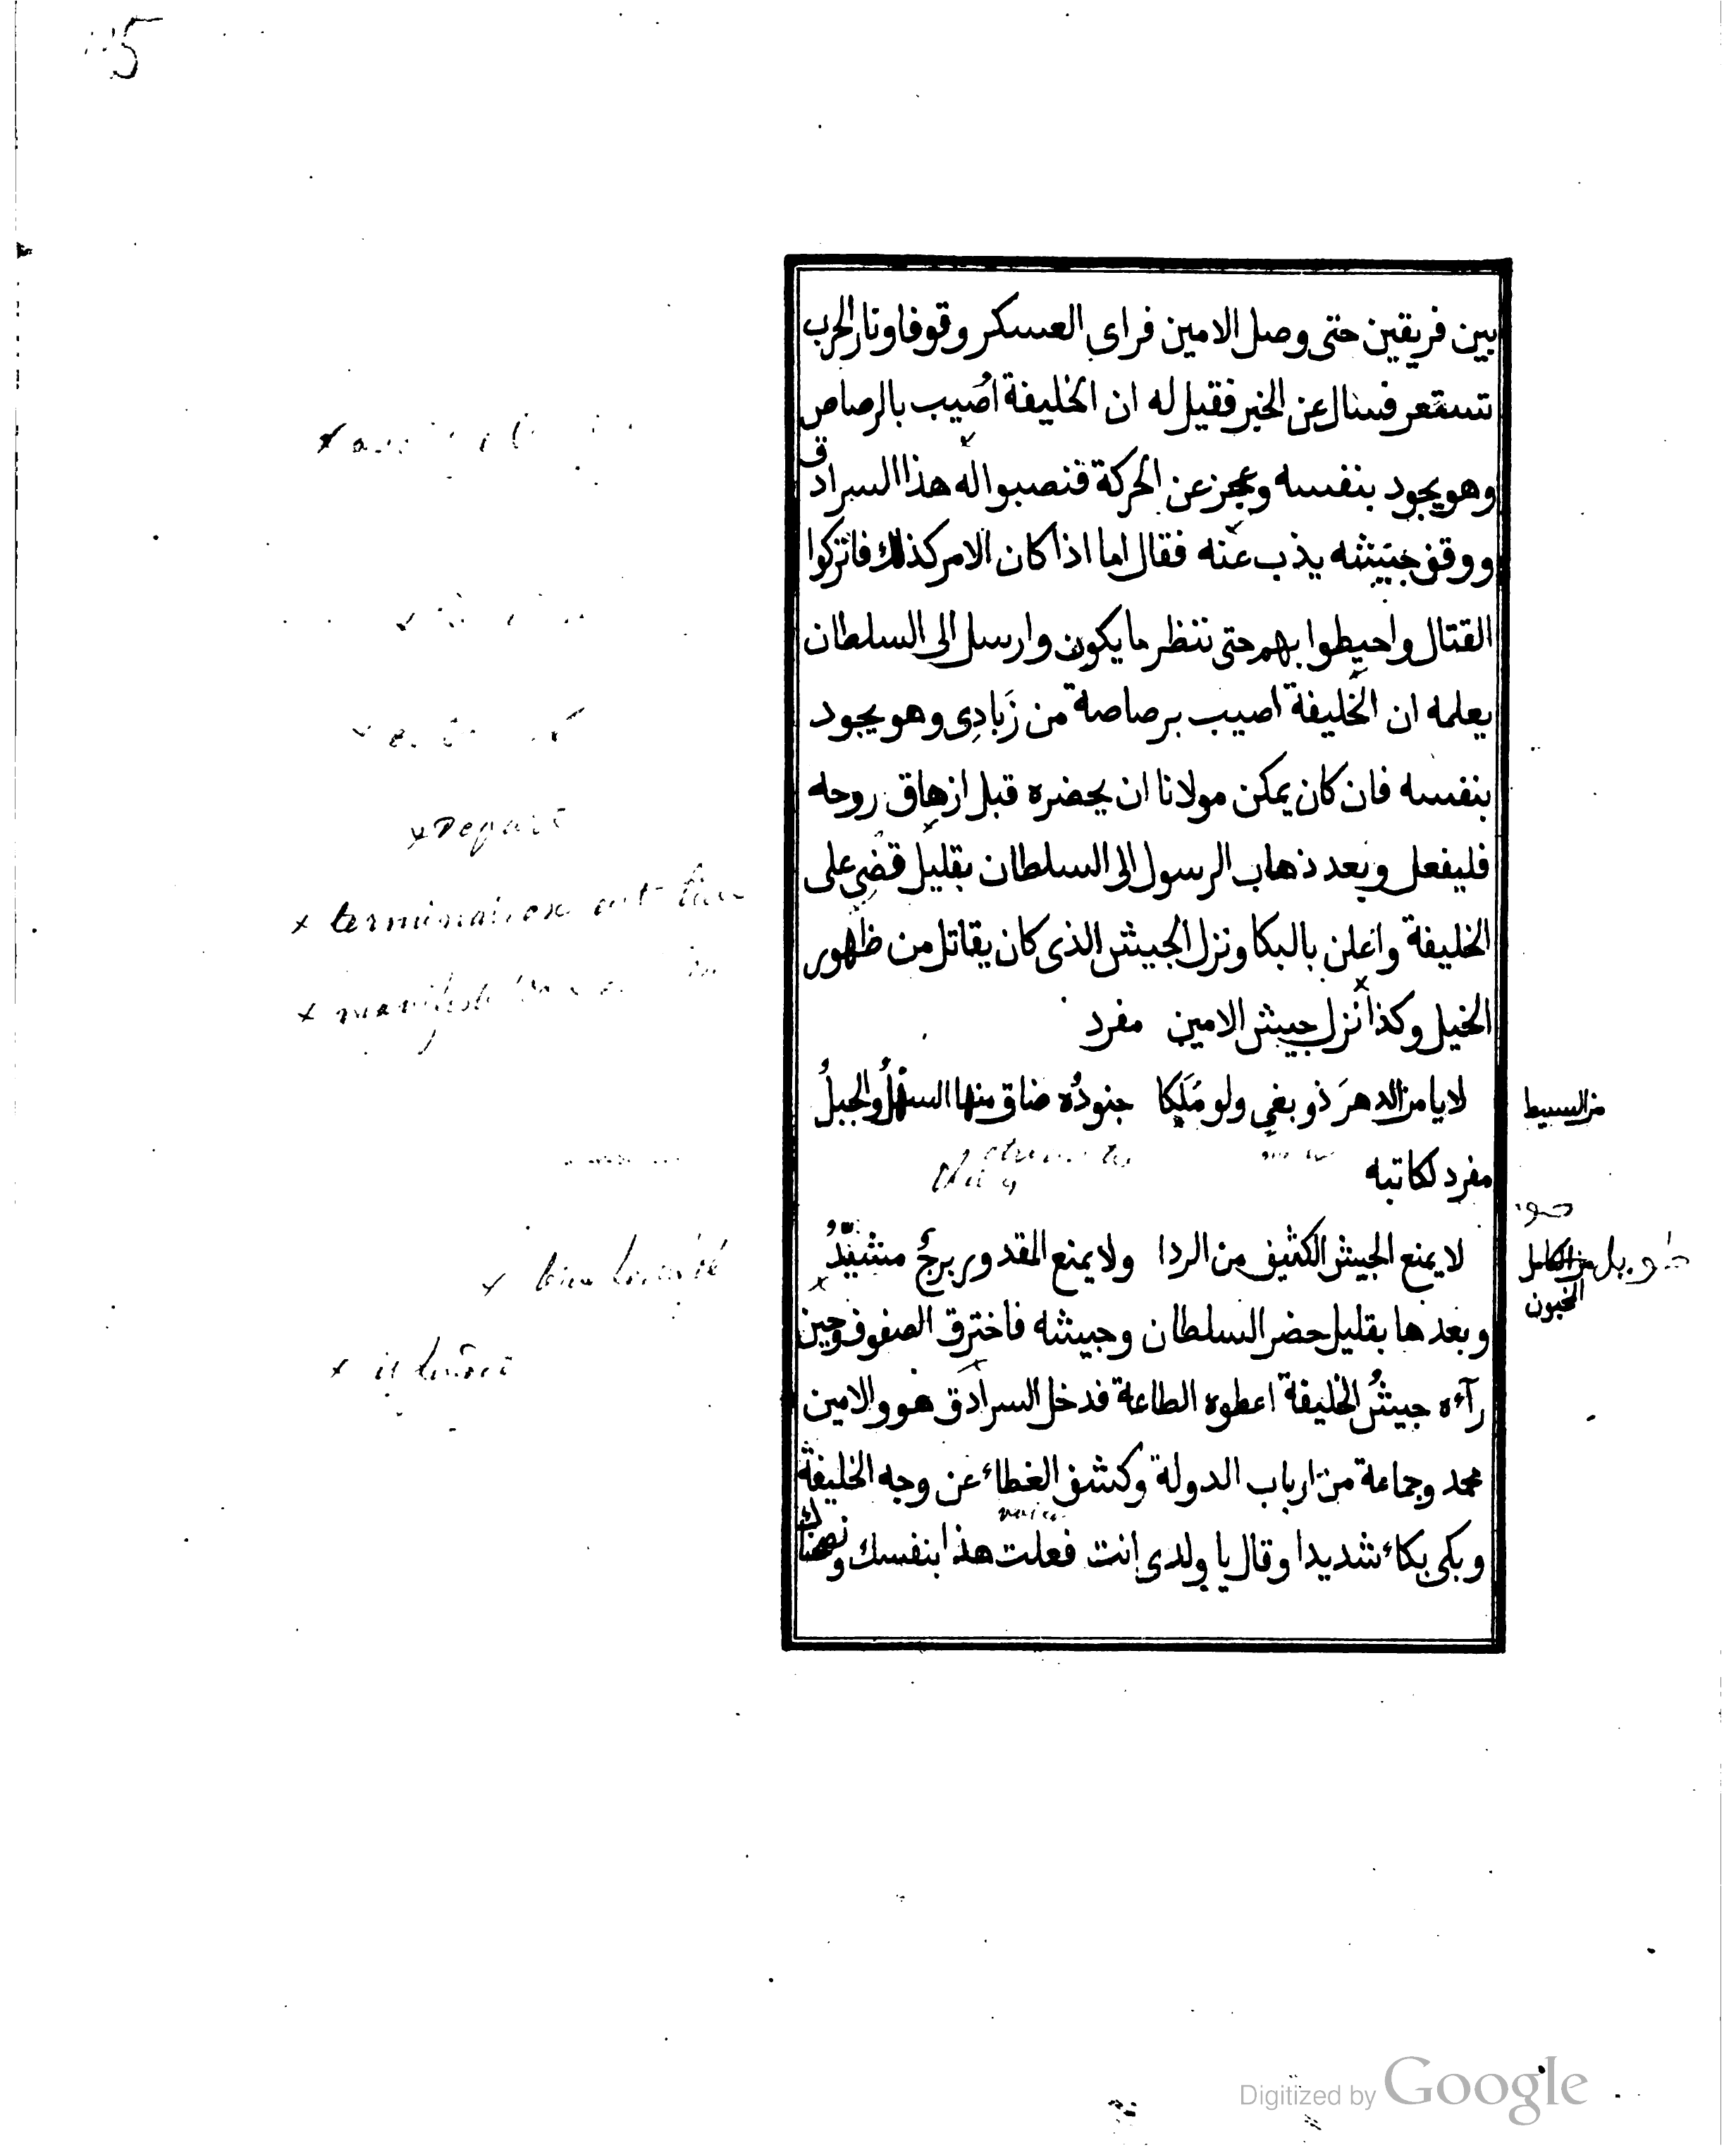 بين فريقين حتى وصل الامين فراى العسكر وقوفا ونار الحرب
تستعر فسال عن الخبر فقيل له ان الخليفة اُصيب بالرصاص
وهو يجود بنفسه وعجز عن الحركة فنصبوا له هذا السرادق
ووقف جيشه يذب عنه فقال اما اذا كان الامر كذلك فاتركوا
القتال واحيطوا بهم حتى ننظر ما يكون وارسل الى السلطان
يعلمه ان الخليفة اصيب برصاصة من زَبادِى وهو يجود
بنفسه فان كان يمكن مولانا ان يحضره قبل ازهاق روحه
فليفعل وبعد ذهاب الرسول الى السلطان بقليل قضى على
الخليفة واعلن بالبكا ونزل الجيش الذى كان يقاتل من ظهور
الخيل وكذا نزل جيش الامين مفرد
لا يامن الدهرَ ذو بغي ولو مَلَكا جنودُه ضاق منها السهلُ والجبلُ
من البسيط
مفرد لكاتبه
لا يمنع الجيش الكثيف من الردا ولا يمنع المقدور برجٌ مشيّدُ
طويل
من الكامل
المخبون
وبعدها بقليل حضر السلطان وجيشه فاخترق الصفوف وحين
رآءه جيشُ الخليفة اعطوه الطاعة فدخل السرادق هو والامين
محمد وجماعة من ارباب الدولة وكشف الغطاء عن وجه الخليفة
وبكى بكاء شديدا وقال يا ولدى انت فعلت هذا بنفسك ونصحناك
x termination
Digitized by Google